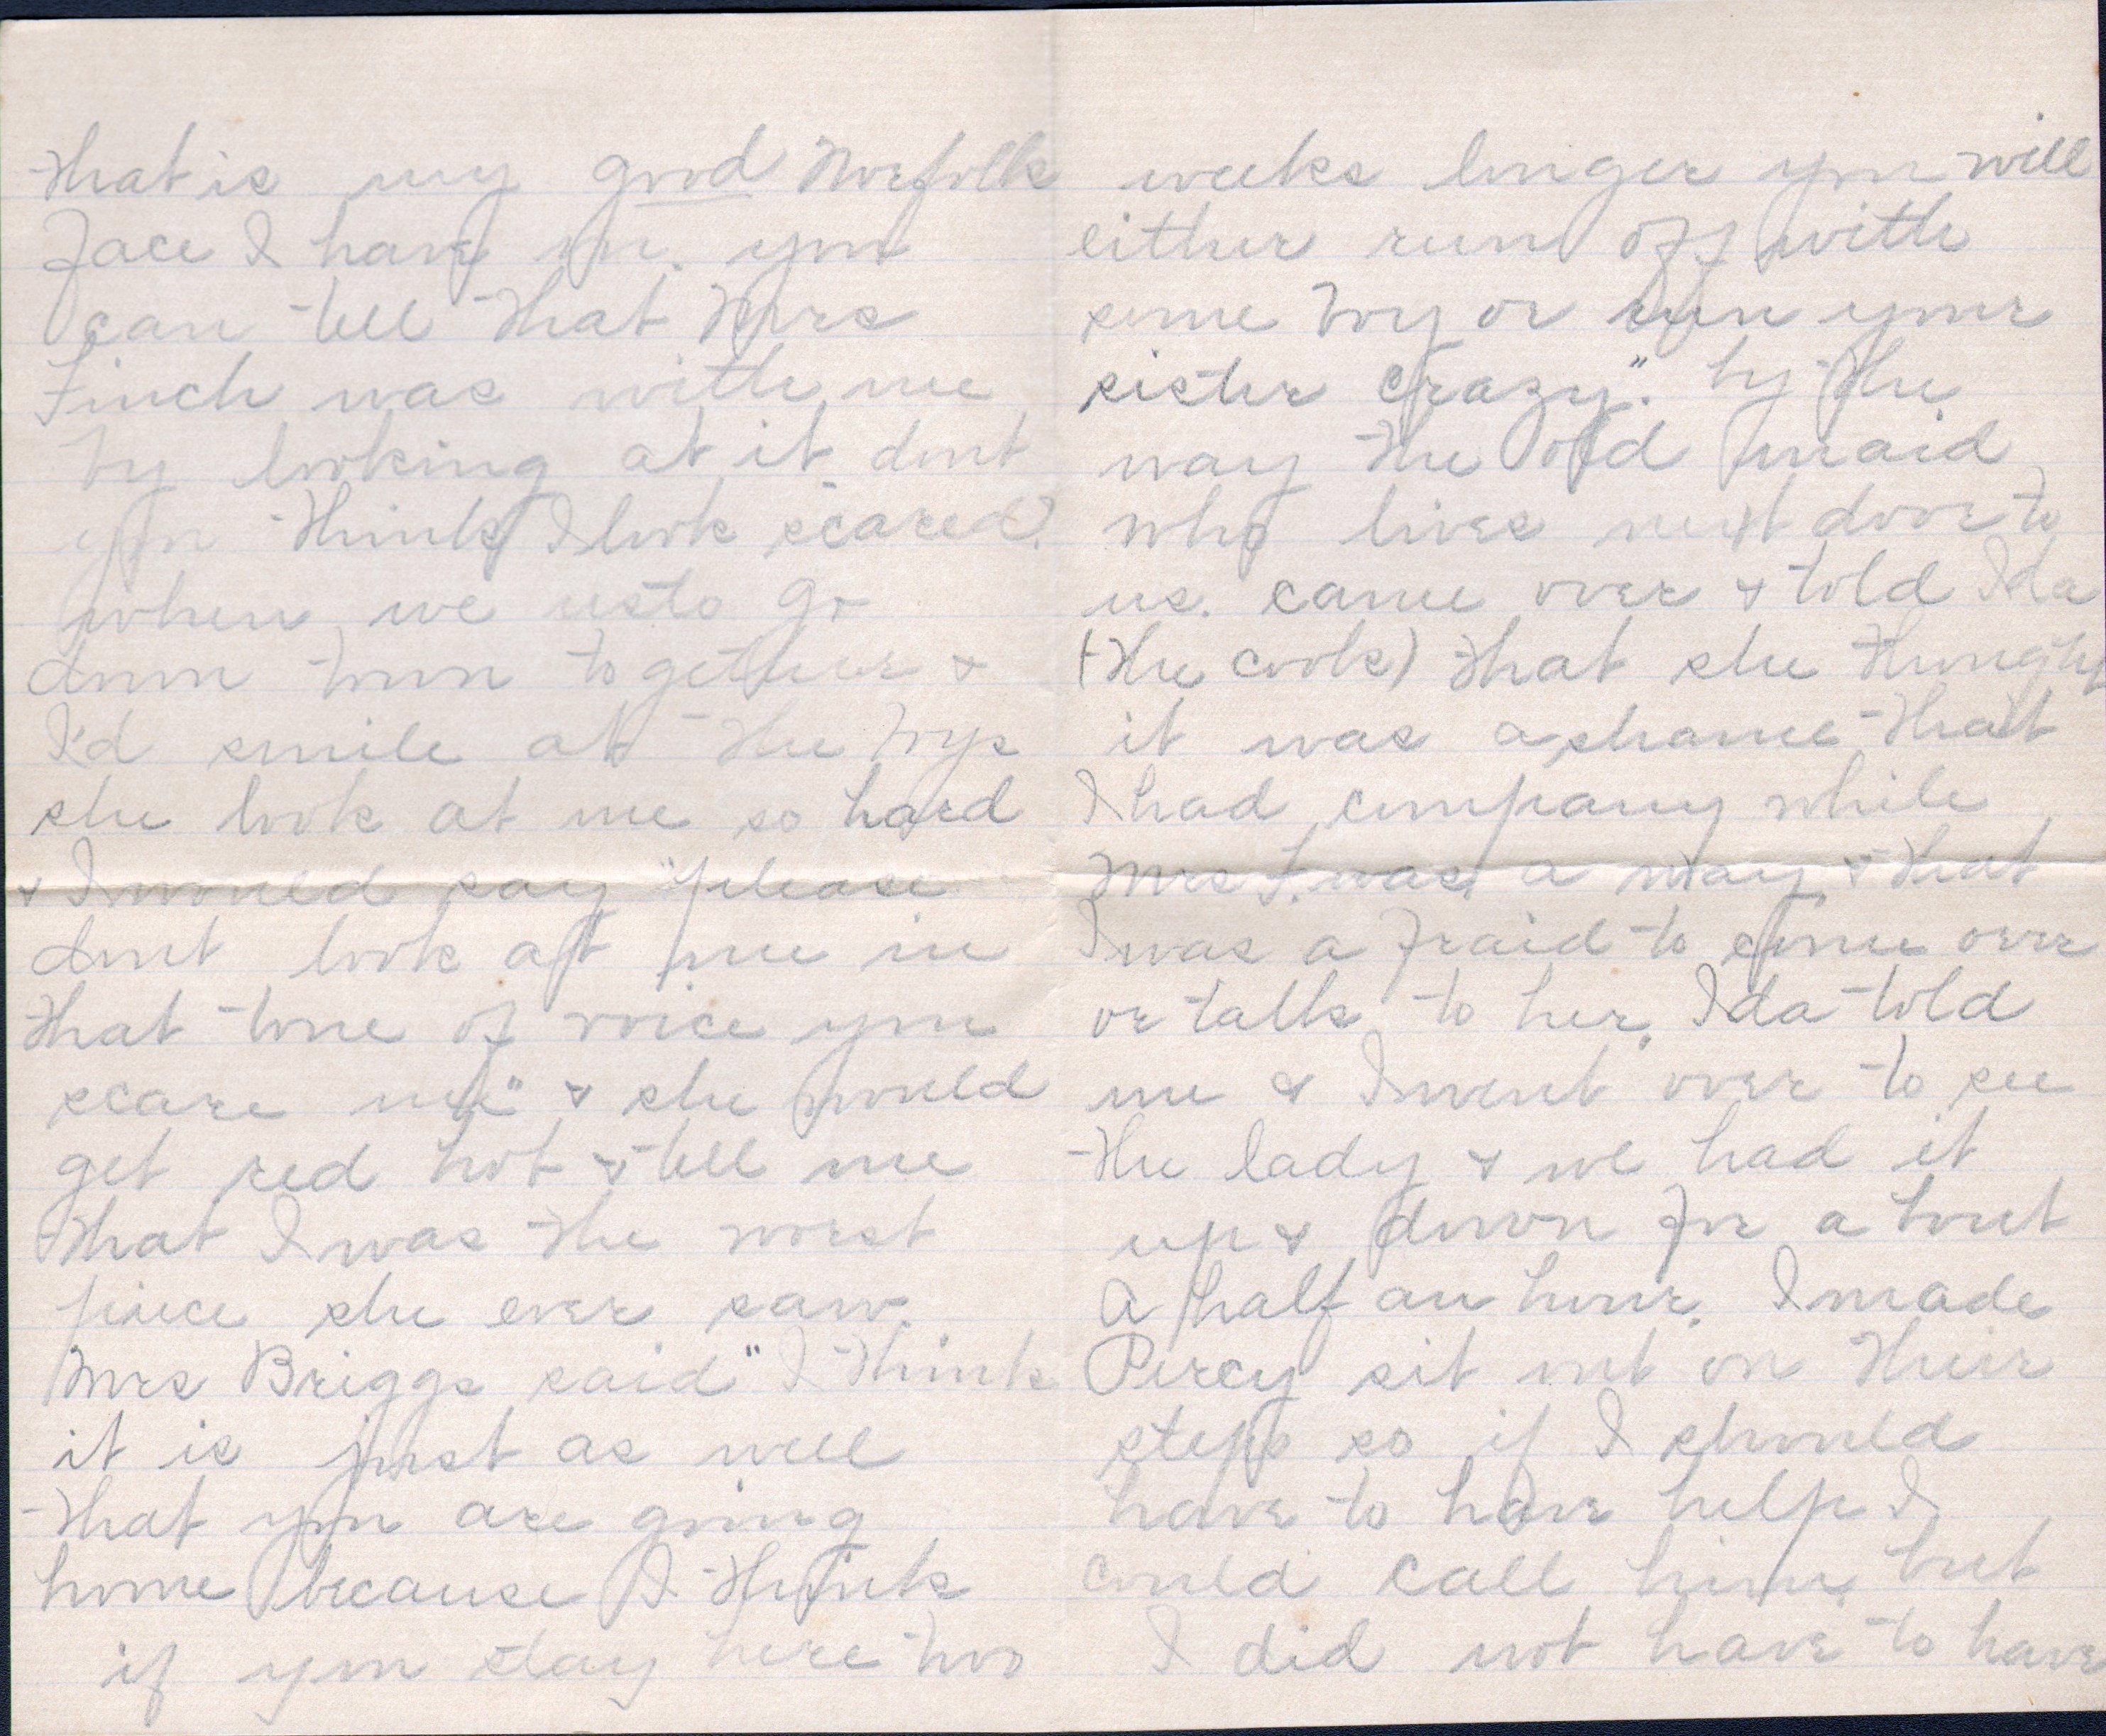 that is my good Norfolk
face I have on. you
can tell that Mrs
Finch was with me
by looking at it dont
you think I look scared?
when we usto go
down town together &
I'd smile at the boys
she look at me so hard
& I would say "please
dont look at me in
that tone of voice you
scare me" & she would
get red hot & tell me
that I was the worst
piece she ever saw.
Mrs Briggs said "I think
it is just as well
that you are going
home because I think
if you stay here two
weeks longer you will
either run off with
some boy or run your
sister crazy." by the
way the old maid
who lives next door to
us. came over & told Ida
(the cook) that she thought
it was a shame that
I had company while
Mrs F. was a way & that
I was a fraid to come over
or talk to her. Ida told
me & I went over to see
the lady & we had it
up & down for a bout
a half an hour. I made
Percy sit out on their
steps so if I should
have to have help I
could call him, but
I did not have to have